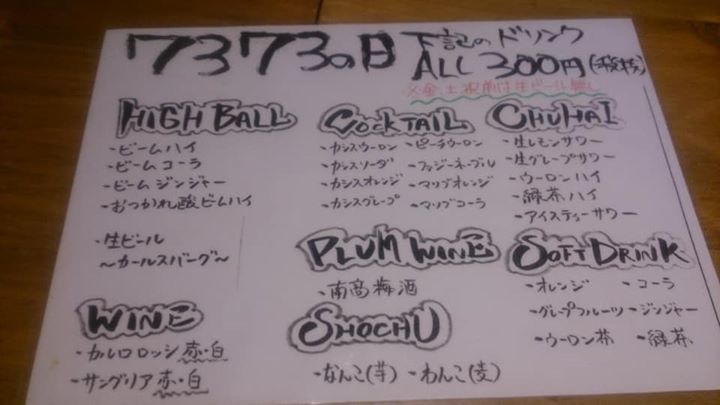 7373の日 下記のドリンク
ALL 300円(税抜)
※金、土、祝前は生ビール無し
HIGH BALL
・ビームハイ
・ビームコーラ
・ビームジンジャー
・おつかれ酸ビームハイ
・生ビール
〜カールスバーグ〜
COCKTAIL
・カシスウーロン ・ピーチウーロン
・カシスソーダ ・ファジーネーブル
・カシスオレンジ ・マリブオレンジ
・カシスグレープ ・マリブコーラ
CHUHAI
・生レモンサワー
・生グレープサワー
・ウーロンハイ
・緑茶ハイ
・アイスティーサワー
WINE
・カルロロッシ 赤・白
・サングリア 赤・白
PLUM WINE
・南高梅酒
SHOCHU
・なんこ(芋) ・わんこ(麦)
SOFT DRINK
・オレンジ ・コーラ
・グレープフルーツ ・ジンジャー
・ウーロン茶 ・緑茶